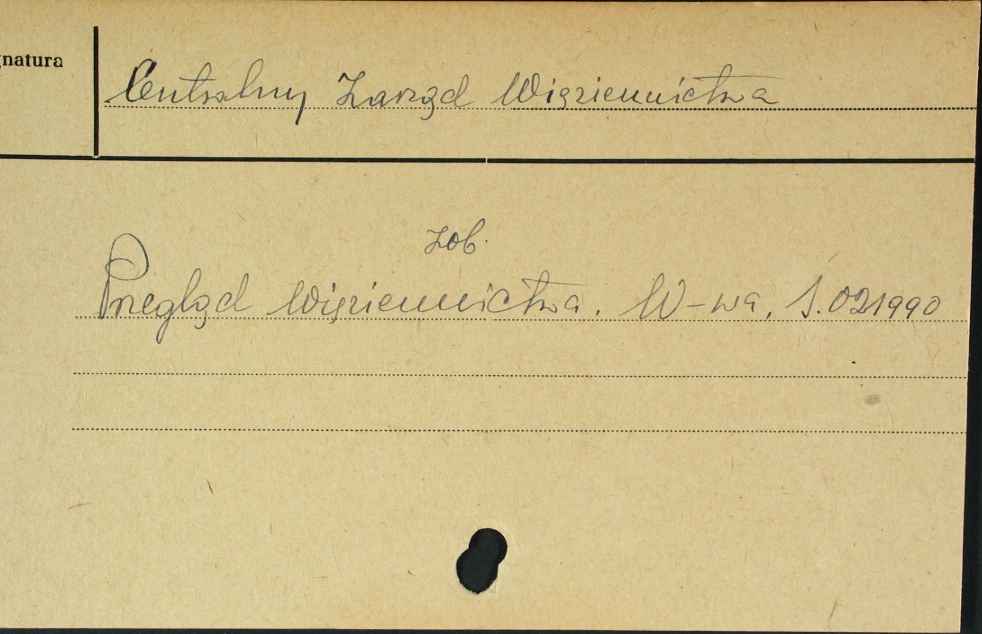 gnatura
Centralny Zarząd Więziennictwa
zob.
Przegląd Więziennictwa. W-wa, S.021990